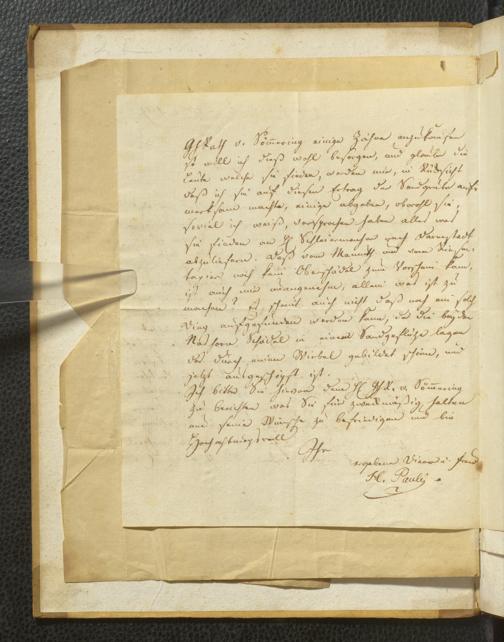 GhRath v. Sömmering einige Zähne anzukaufen
so will ich dieß wohl besorgen, und glaube die
Leute welche sie finden, werden mir, in Rücksicht
daß ich sie auf diesen Ertrag der Sandgrube auf-
merksam machte, einige abgeben, obwohl sie,
soviel ich weiß, versprochen haben alles was
sie finden an H Schleiermacher nach Darmstadt
abzuliefern. Daß vom Mamuth und vom
noch kein Oberschädel zum Vorschein kam,
ist auch mir unangenehm, allein was ist zu
machen? es scheint auch nicht daß noch ein solch
Ding aufgefunden werden kann, da die beyden
Nashorn Schädel in einem Sandgeschütze lagen
das durch einen Wirbel gebildet schien, und
jetzt ausgeschöpft ist.
Ich bitte Sie hievon dem H GhR. v. Sömmering
zu berichten was Sie für zweckmäßig halten
um seine Wünsche zu befriedigen und bin
Hochachtungsvoll
Ihr
ergebener Diener u. Freund
H. Pauli